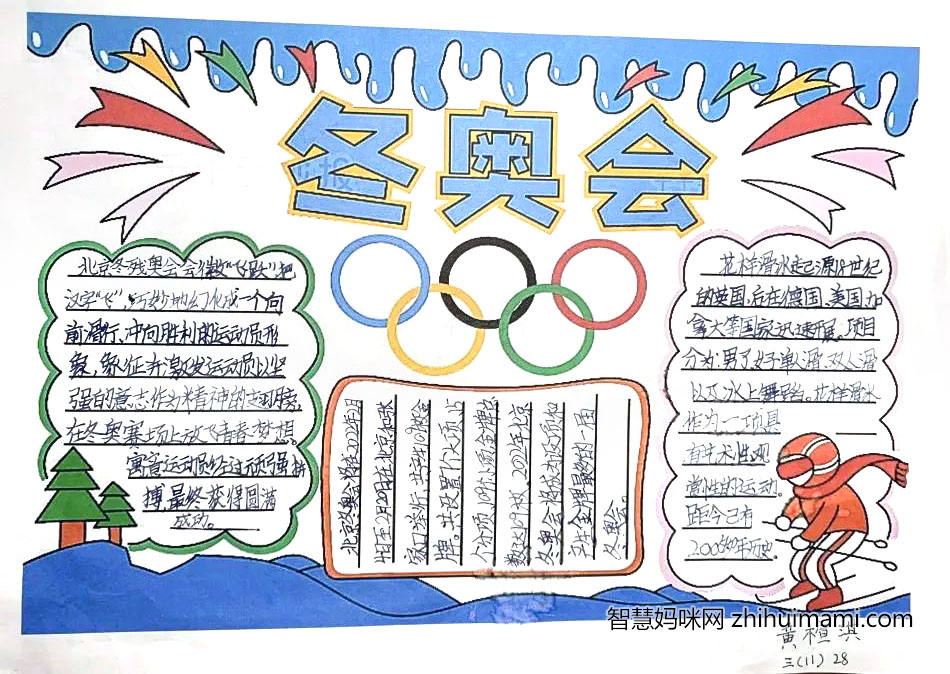 冬奥会
北京冬残奥会会徽"飞跃"把
汉字"飞",巧妙地幻化成一个向
前滑行、冲向胜利的运动员形
象,象征并激发运动员以坚
强的意志作为精神的翅膀,
在冬奥赛场上放飞青春梦想。
寓言运动员经过顽强拼
搏,最终获得圆满
成功。
北京冬奥会将在2022年2月
4日至2月20日在北京和张
家口举行,共产生109枚金
牌。共设置7个大项,15
个分项,109个小项,金牌总
数达109枚、2022年北京
冬奥会将成为设项和
产生金牌最多的一届
冬奥会。
花样滑冰起源18世纪
的英国,后在德国、美国、加
拿大等国家迅速开展。项目
分为:男子,女子单人滑、双人滑
以及冰上舞蹈。花样滑冰
作为一项具
有艺术性观
赏性的运动。
距今已有
200多年历史。
智慧妈咪网 zhihuimami.com
三(11) 28